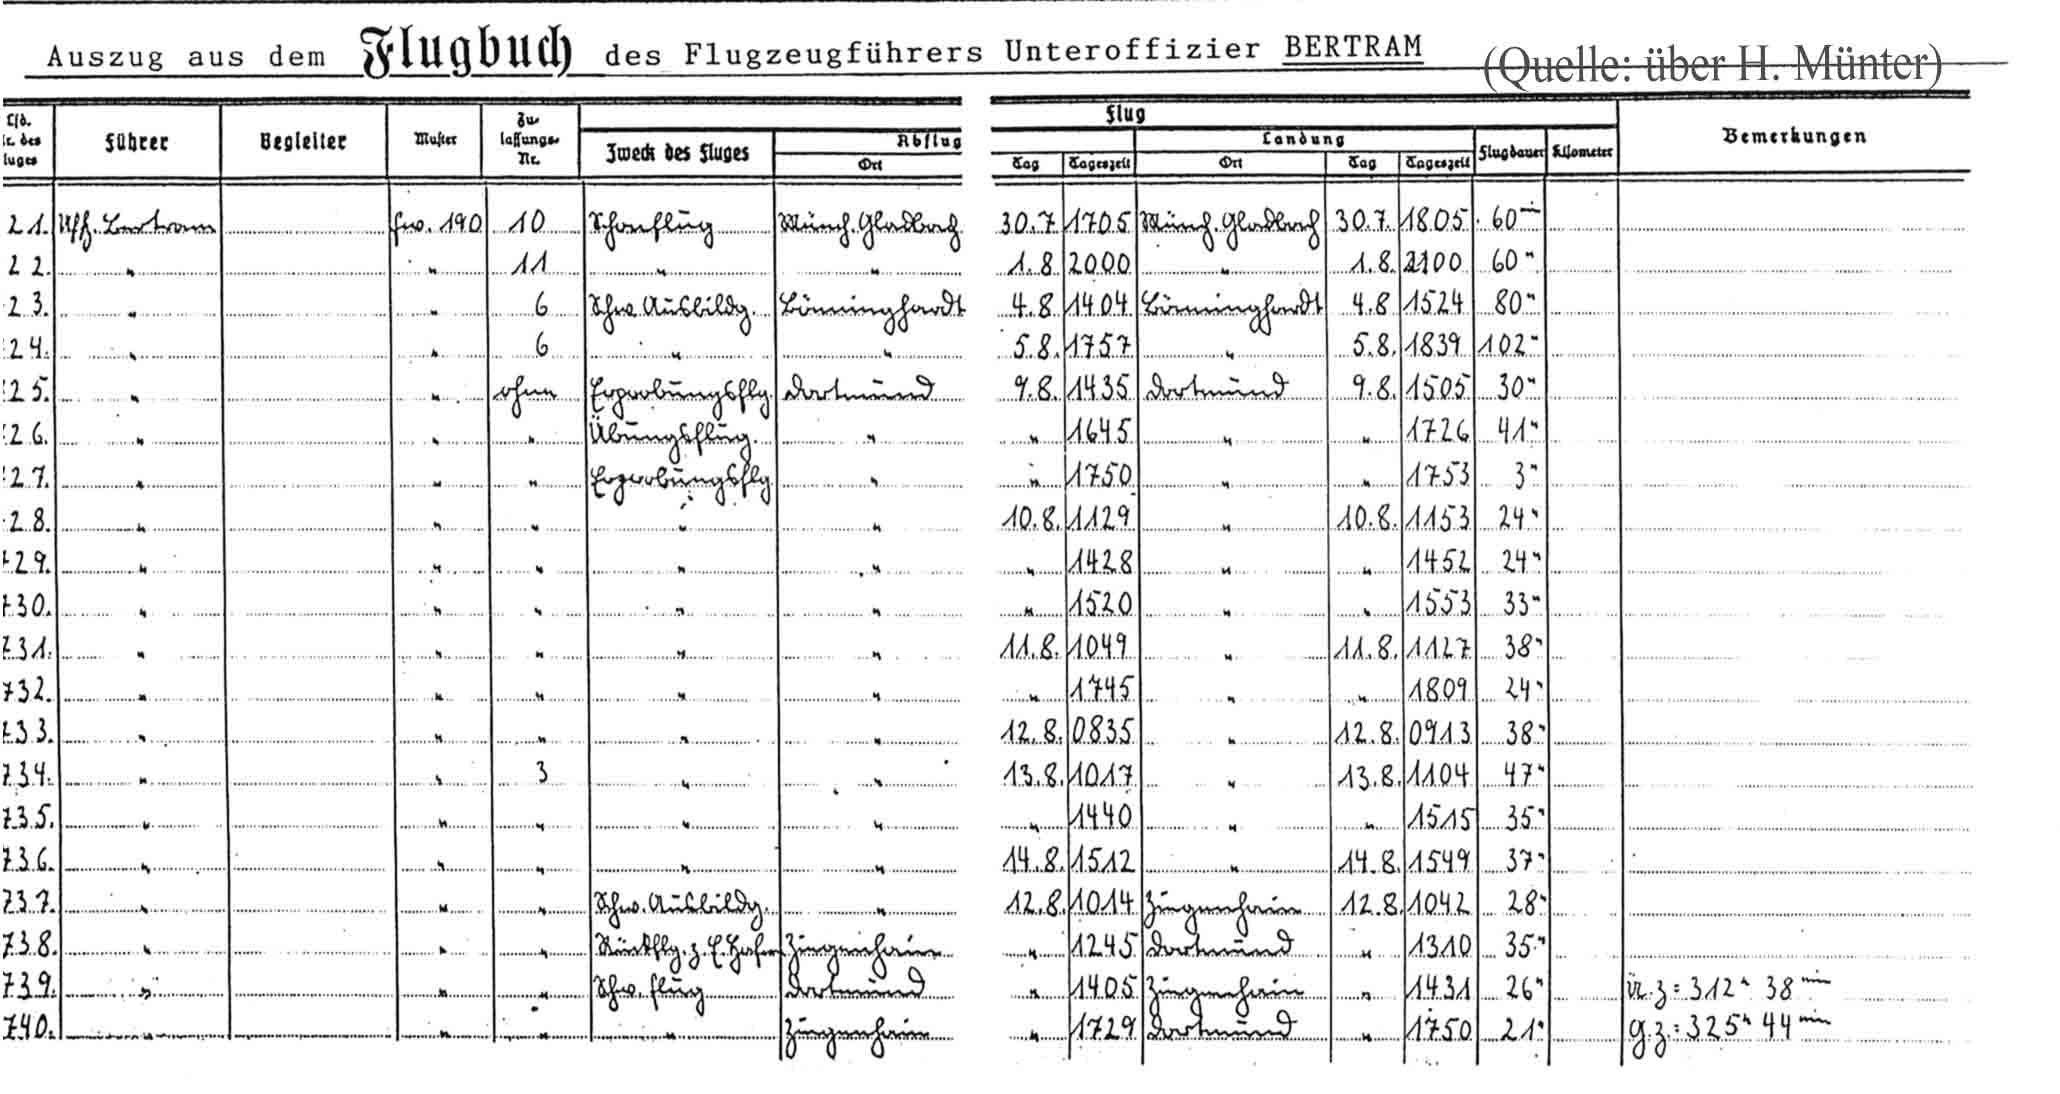 Auszug aus dem Flugbuch des Flugzeugführers Unteroffizier BERTRAM (Quelle: über H. Münter)
Flug
Lfd. Nr. des Fluges Führer Begleiter Muster Zulassungs-Nr. Zweck des Fluges Abflug Landung Flugdauer Kilometer Bemerkungen
Ort Tag Tageszeit Ort Tag Tageszeit
21. Uffz. Bertram Fw. 190 10 Schauflug Münch. Gladbach 30.7 1705 Münch. Gladbach 30.7. 1805 60 min
22. " " 11 " " 1.8. 2000 " 1.8. 2100 60 "
23. " " 6 Schw. Ausbildg. Bönninghardt 4.8. 1404 Bönninghardt 4.8 1524 80 "
24. " " 6 " " 5.8. 1757 " 5.8. 1839 102 "
25. " " ohne Erprobungsflg. Dortmund 9.8. 1435 Dortmund 9.8. 1505 30 "
26. " " " Übungsflug. " " 1645 " " 1726 41 "
27. " " " Erprobungsflg. " " 1750 " " 1753 3 "
28. " " " " " 10.8. 1129 " 10.8. 1153 24 "
729. " " " " " " 1428 " " 1452 24 "
730. " " " " " " 1520 " " 1553 33 "
731. " " " " " 11.8. 1049 " 11.8. 1127 38 "
732. " " " " " " 1745 " " 1809 24 "
733. " " " " " 12.8. 0835 " 12.8. 0913 38 "
734. " " 3 " " 13.8. 1017 " 13.8. 1104 47 "
735. " " " " " " 1440 " " 1515 35 "
736. " " " " " 14.8. 1512 " 14.8. 1549 37 "
737. " " " Schw. Ausbildg. " 12.8. 1014 Ziegenhain 12.8. 1042 28 "
738. " " " Rückflg. z. E. Hafen Ziegenhain " 1245 Dortmund " 1310 35 "
739. " " " Schw. flug Dortmund " 1405 Ziegenhain " 1431 26 " ü. z = 312 h 38 min
740. " " " " Ziegenhain " 1729 Dortmund " 1750 21 " g. z. = 325 h 44 min